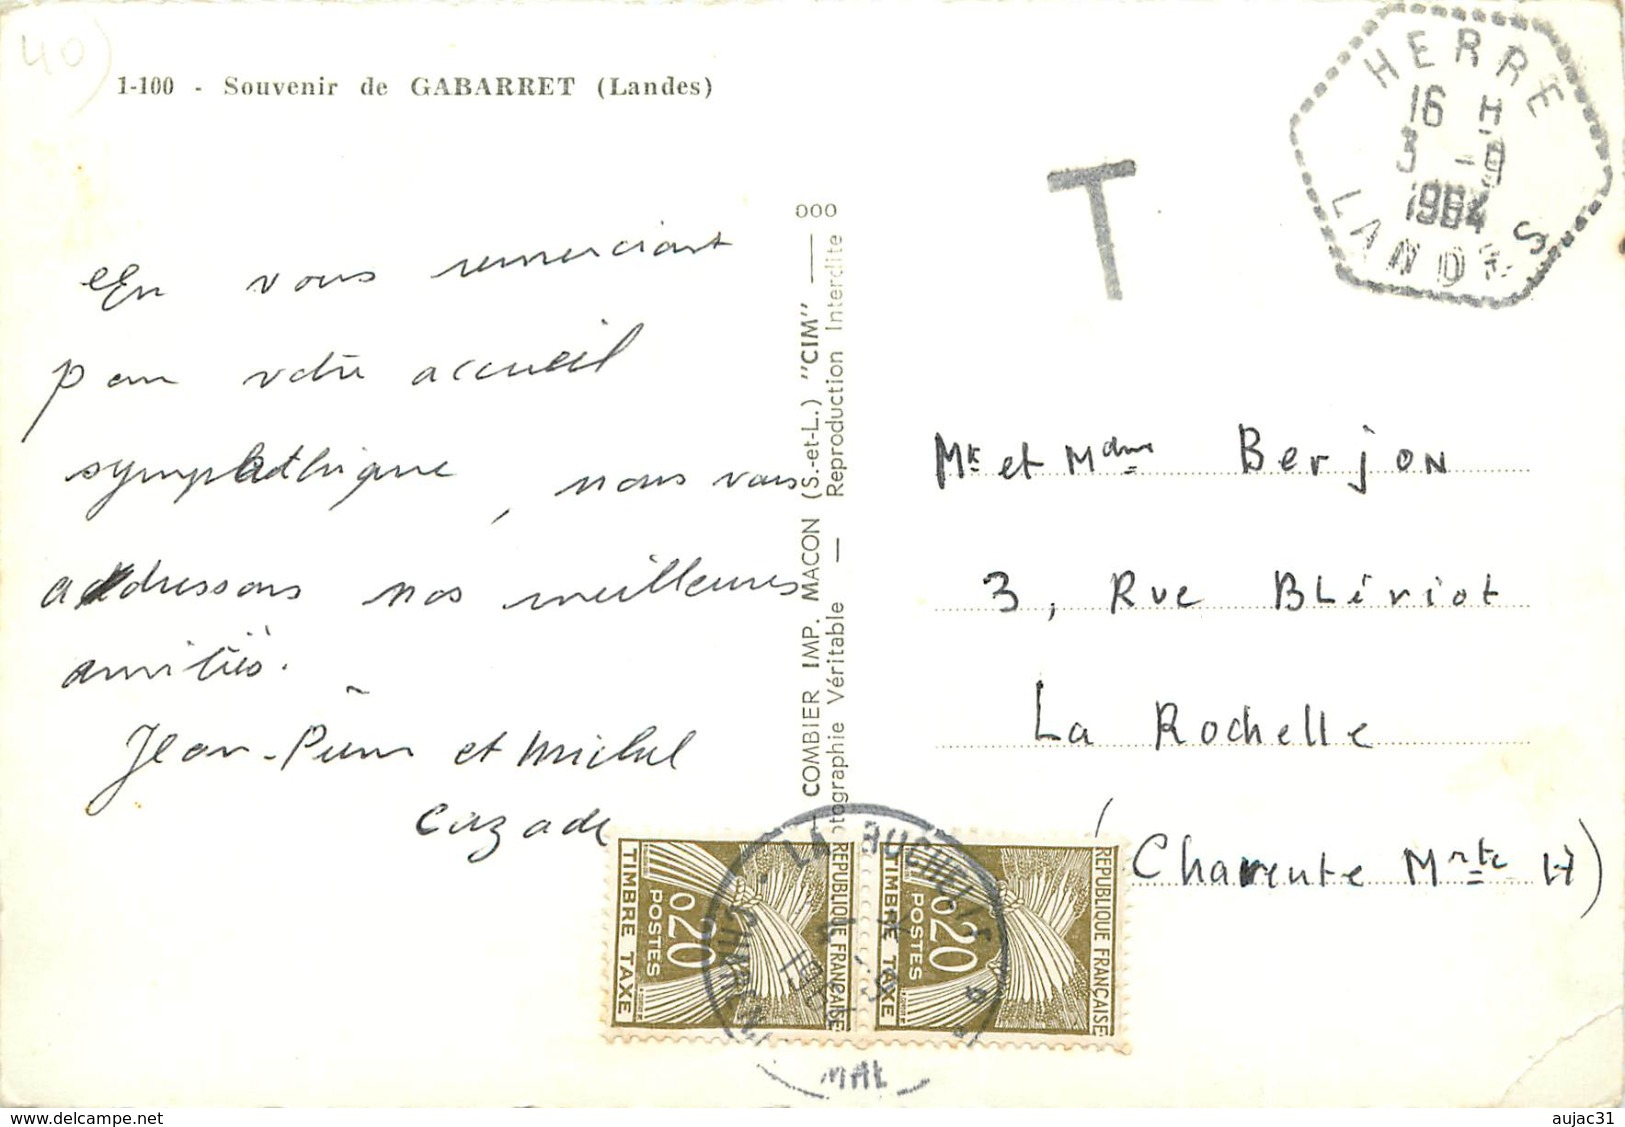 40
1-100 - Souvenir de GABARRET (Landes)
En vous remerciant
pour votre accueil
sympathique, nous vous
adressons nos meilleures
amitiés.
Jean-Pierre et Michel
Cazade
COMBIER IMP. MACON (S.-et-L.) "CIM" — 000
Photographie Véritable — Reproduction Interdite
T
HERRE
16 H
3 -9
1964
LANDES
Mr et Mdme Berjon
3, Rue Blériot
La Rochelle
(Charente Mrte)
REPUBLIQUE FRANÇAISE
0,20
POSTES
TIMBRE TAXE
REPUBLIQUE FRANÇAISE
0,20
POSTES
TIMBRE TAXE
LA ROCHELLE
www.delcampe.net
aujac31